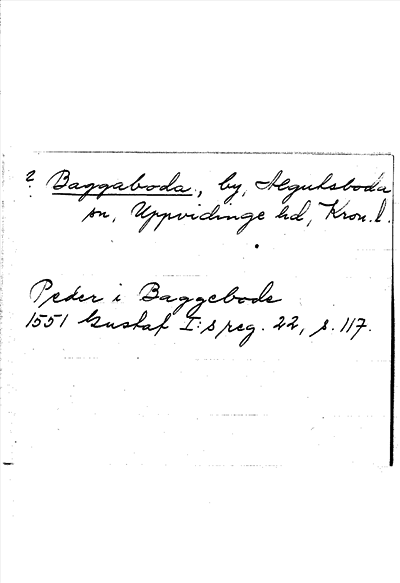 ? Baggaboda, by, Algutsboda
sn, Uppvidinge hd, Kron. l.
Peder i Baggebode
1551 Gustaf I:s reg. 22, s. 117.